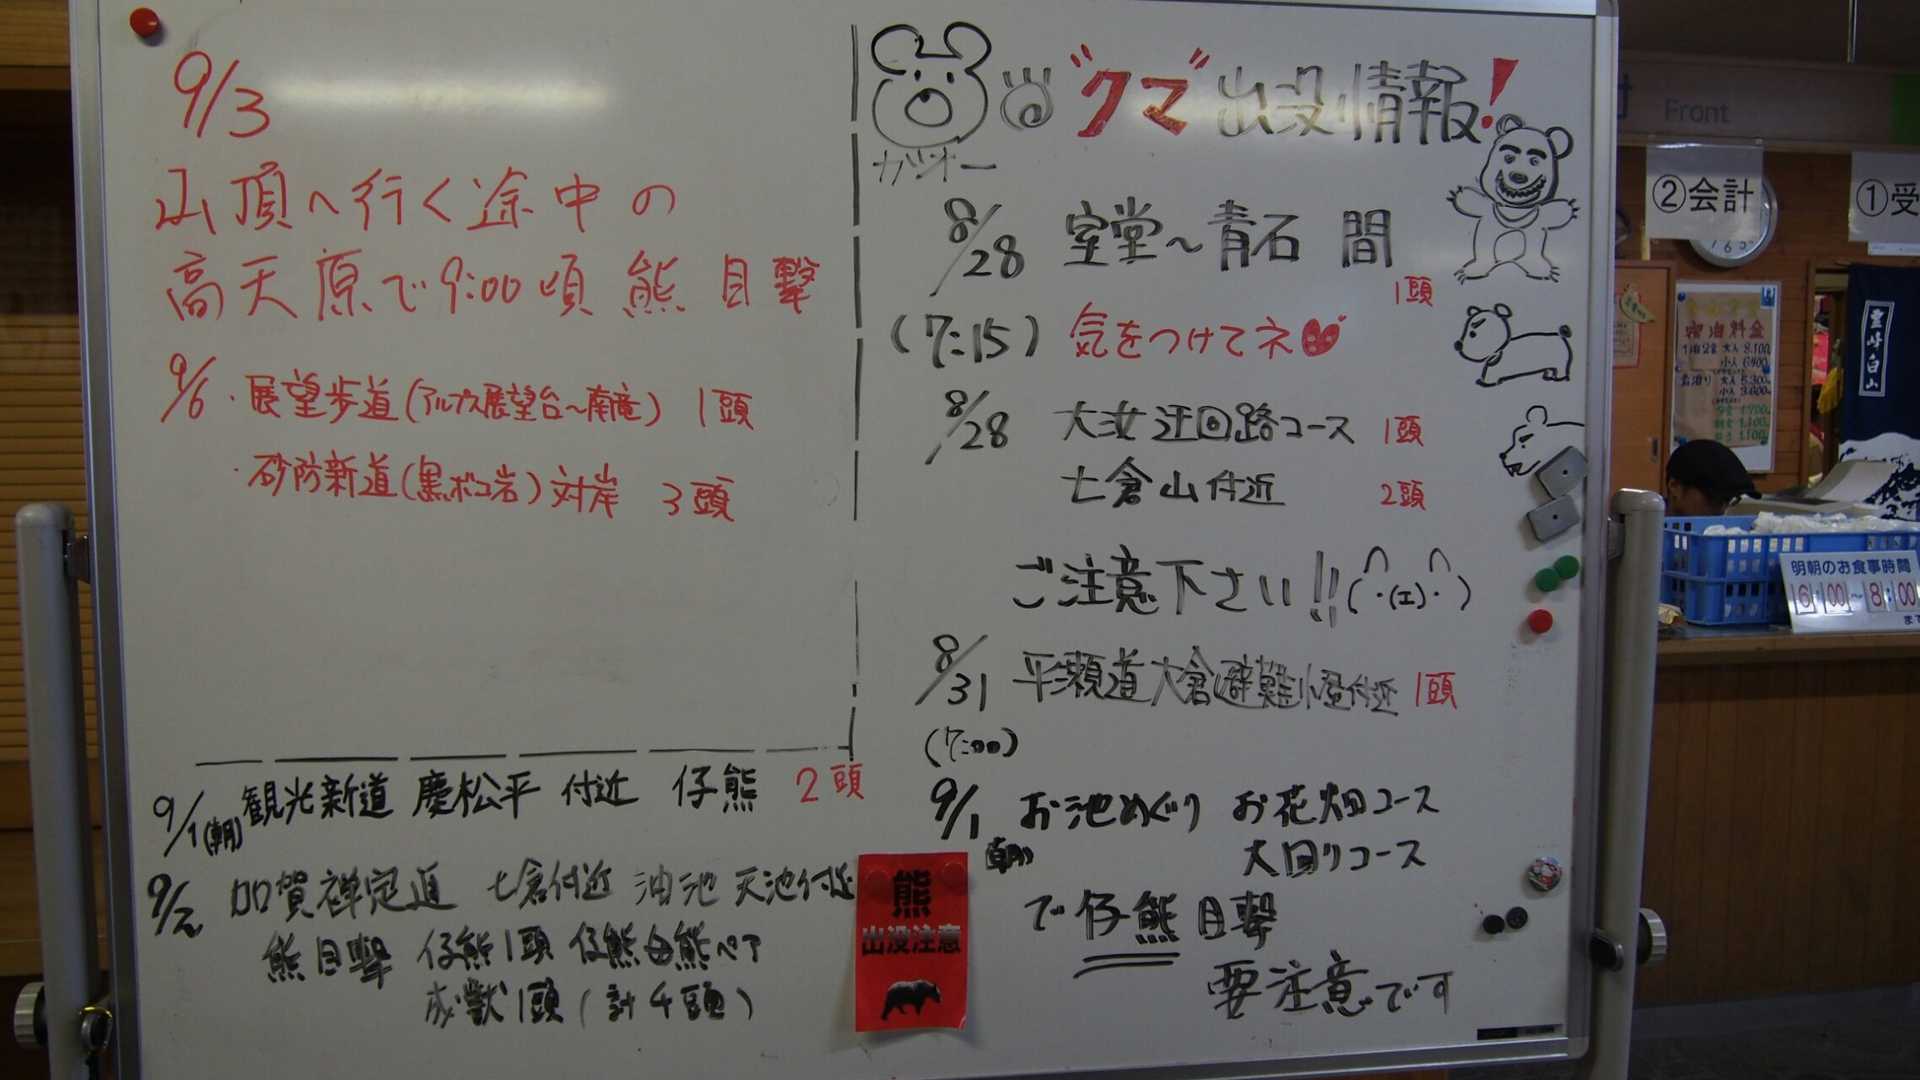 "クマ"出没情報!
ガオー
8/28 室堂～青石 間
1頭
(7:15) 気をつけてネ
8/28 大汝迂回路コース 1頭
七倉山付近 2頭
ご注意下さい!!(・(エ)・)
8/31 平瀬道大倉避難小屋付近 1頭
(7:00)
9/1 お池めぐり お花畑コース
(朝) 大回りコース
で仔熊目撃
要注意です
9/3
山頂へ行く途中の
高天原で9:00頃 熊 目撃
9/6 ・展望歩道(アルプス展望台～南竜) 1頭
・砂防新道(黒ボコ岩)対岸 3頭
9/1(朝) 観光新道 慶松平 付近 仔熊 2頭
9/2 加賀禅定道 七倉付近 油池 天池付近
熊目撃 仔熊1頭 仔熊母熊ペア
成獣1頭(計4頭)
熊
出没注意
Front
②会計
①受
宿泊料金
1泊2食 大人 8,100
霊峰白山
明朝のお食事時間
6:00～8:00
まで